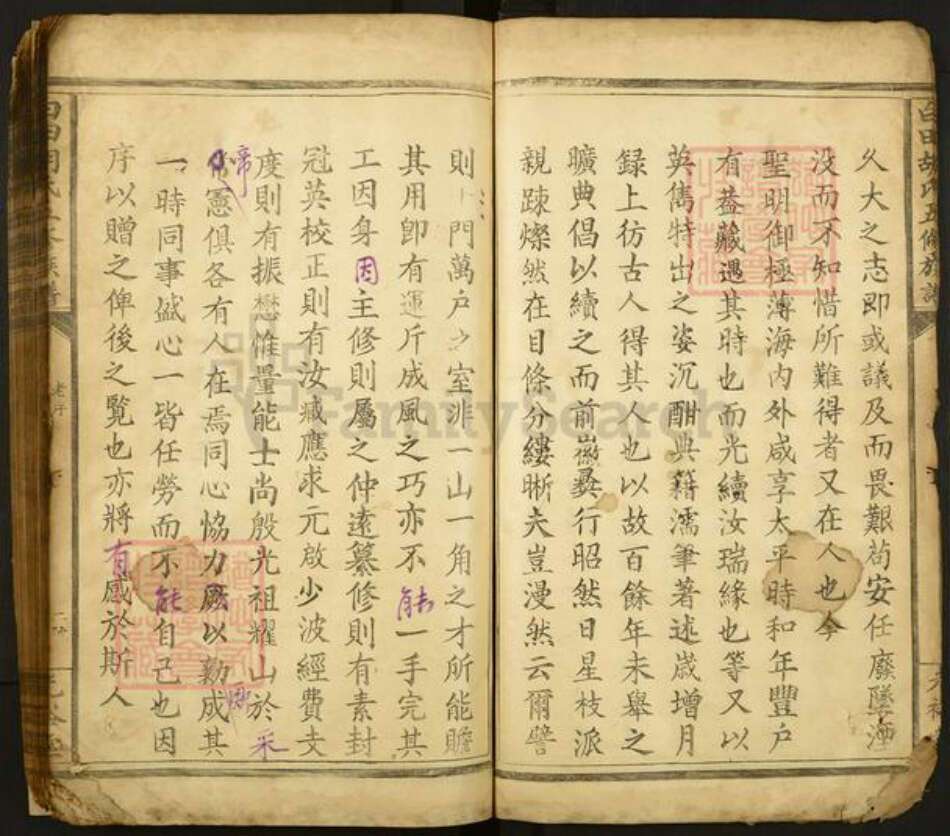 久大之志即或議及而畏艱苟安任廢墜湮
没而不知惜所難得者又在人也今
聖明御極薄海内外咸享太平時和年豐戶
有葢藏遇其時也而光續汝瑞緣也等又以
英雋特出之姿沉酣典籍濡筆著述歳增月
録上彷古人得其人也以故百餘年未舉之
曠典倡以續之而前徽奕行昭然日星枝派
親踈燦然在目條分縷晰夫豈漫然云爾譬
則千門萬戶之室非一山一角之才所能贍
其用卽有運斤成風之巧亦不能一手完其
工因身因主修則屬之仲遠纂修則有素封
冠英校正則有汝臧應求元啟少波經費支
度則有振懋惟量能士尚殷光祖耀山於采
憲俱各有人在焉同心恊力以勷成其
一時同事盛心一皆任勞而不能自己也因
序以贈之俾後之覧也亦將有感於斯人
白田胡氏五修族譜
FamilySearch